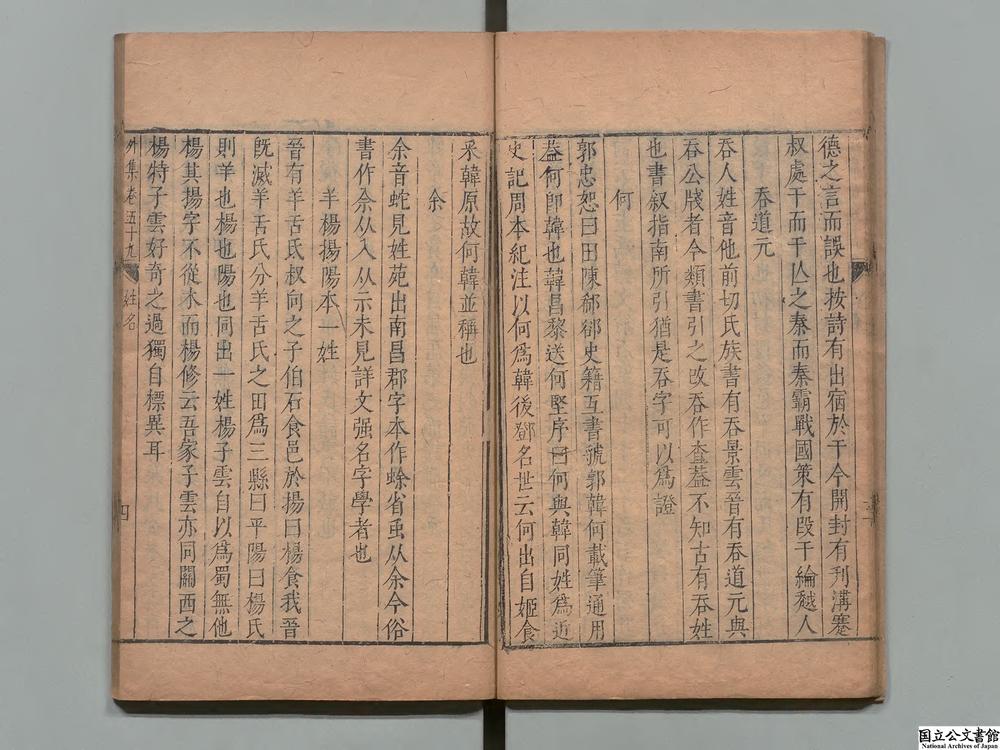 德之言而誤也按詩有出宿於干今開封有刋溝蹇
叔處干而干亾之秦而秦霸戰國策有段干綸越人
吞道元
吞人姓音他前切氏族書有吞景雲晉有吞道元與
吞公牋者今類書引之改吞作查葢不知古有吞姓
也書叙指南所引猶是吞字可以爲證
何
郭忠恕曰田陳郗郤史籍互書號郭韓何載筆通用
葢何卽韓也韓昌黎送何堅序曰何與韓同姓爲近
史記周本紀注以何爲韓後鄧名世云何出自姬食
采韓原故何韓並稱也
余
余音蛇見姓苑出南昌郡字本作蜍省䖝从余今俗
書作佘从入从示未見詳文强名字學者也
羊楊揚陽本一姓
晉有羊舌氏叔向之子伯石食邑於揚曰楊食我晉
旣滅羊舌氏分羊舌氏之田爲三縣曰平陽曰楊氏
則羊也楊也陽也同出一姓楊子雲自以爲蜀無他
楊其揚字不從木而楊修云吾家子雲亦同關西之
楊特子雲好奇之過獨自標異耳
外集卷五十九 姓名 四
国立公文書館
National Archives of Japan